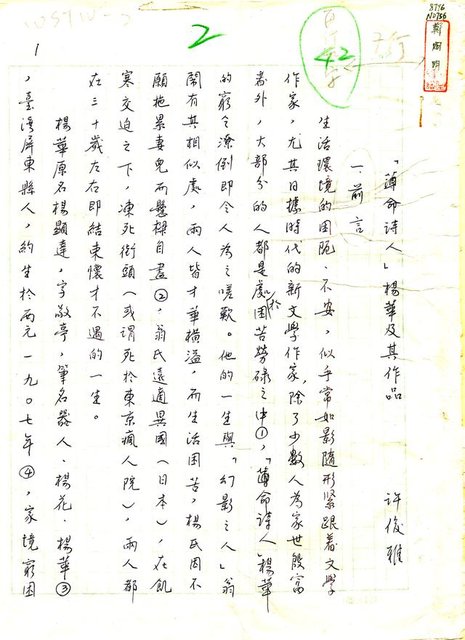 「薄命詩人」楊華及其作品
許俊雅
一、前言
生活環境的困阨、不安，似乎常如影隨形緊跟着文學
作家，尤其日據時代的新文學作家，除了少數人為家世殷富
者外，大部分的人都是處於困苦勞碌之中①，「薄命詩人」楊華
的窮乏潦倒即令人為之嗟歎。他的一生與「幻影之人」翁
鬧有其相似處，兩人皆才華橫溢，而生活困苦，楊氏因不
願拖累妻兒而懸樑自盡②，翁氏遠適異國（日本），在飢
寒交迫之下，凍死街頭（或謂死於東京瘋人院），兩人都
在三十歲左右即結束懷才不遇的一生。
楊華原名楊顯達，字敬亭，筆名器人．楊花．楊華③
，臺灣屏東縣人，約生於西元一九〇七年④，家境窮困
1
2
42